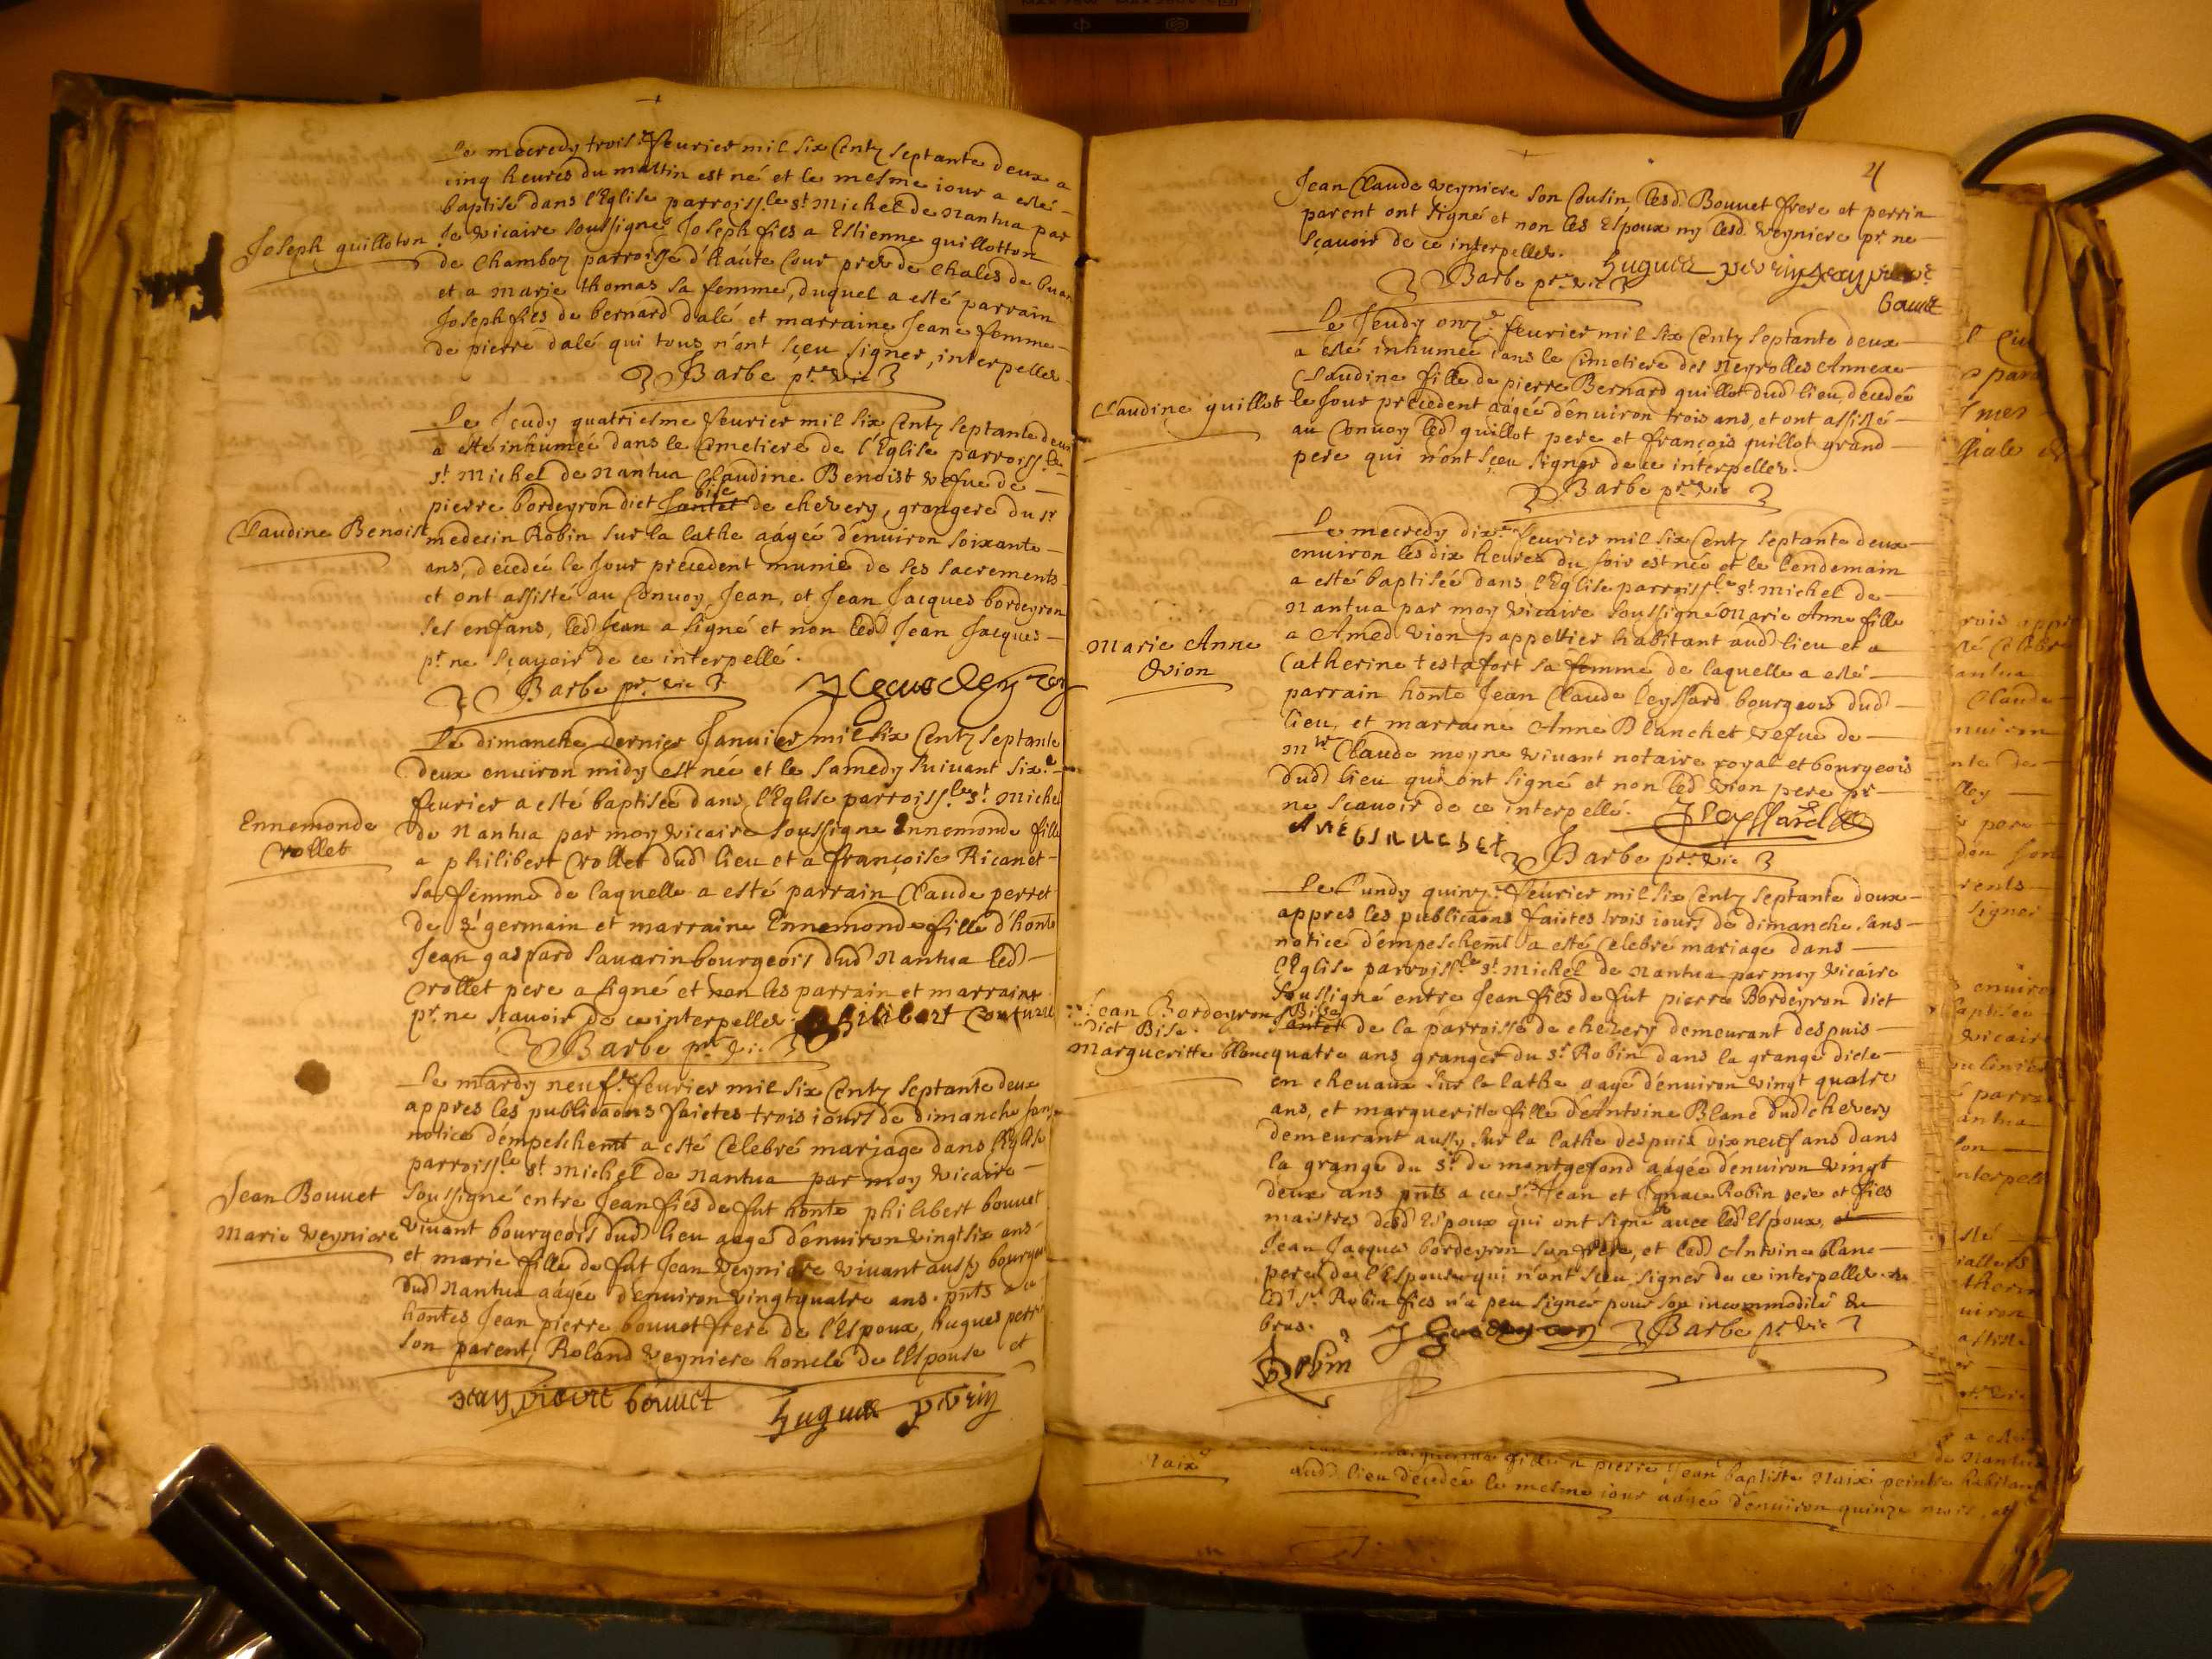 Le mecredy trois.e feurier mil six Centz septante deux a
cinq heures du mattin est né et le mesme iour a esté
baptisé dans l'Eglise parroiss.le st Michel de Nantua par
Joseph guilloton
le vicaire soussigné Joseph fils a Estienne guillotton
de Chamboz parroisse d'haute Cour pres de Chales de
et a Marie thomas sa femme, duquel a esté parrain
Joseph fils de bernard dalé et marraine Jeane femme
de pierre dalé qui tous n'ont sçeu signer, interpellez
Barbe pr. vic
Le Jeudy quatriesme feurier mil six Centz septante deux
a esté inhumée dans le Cimetiere de l'Eglise parroiss.le
st Michel de Nantua Claudine Benoist vefue de
bise
pierre bordeyron dict Jantet de chevery, grangere du sr
Claudine Benoist
medecin Robin sur la lathe aágée d'enuiron soixante
ans, decedée le Jour precedent munie de ses sacrements
et ont assisté au Conuoy Jean, et Jean Jacques bordeyron
ses enfans, led Jean a signé et non led Jean Jacques
pr ne sçauoir de ce interpellé.
Barbe pr. vic
Le dimanche dernier Januier mil six Centz septante
deux enuiron midy est née et le samedy suiuant six.e
feurier a esté baptisée dans l'Eglise parroiss.le st. Michel
Ennemonde
Crollet
de Nantua par moy vicaire soussigné Ennemonde fille
a philibert Crollet dud lieu et a françoise Ricanet
sa femme de laquelle a esté parrain Claude perret
de st germain et marraine Ennemonde fille d'honte
Jean gaspard Sauarin bourgeois dud Nantua led
Crollet pere a signé et non les parrain et marraine
pr. ne sçauoir de ce interpellez. philibert
Barbe pr. vic.
Le mardy neuf.e feurier mil six Centz septante deux
appres les publicaons faictes trois iours de dimanche sans
notice d'empeschemt a esté Celebré mariage dans l'Eglise
parroiss.le st Michel de Nantua par moy vicaire
Jean Bouuet
Marie Veyniere
soussigné entre Jean fils de fut honte philibert bouuet
viuant bourgeois dud lieu aagé d'enuiron vingt six ans
et marie fille de fut Jean Veyniere viuant aussy bourgeois
dud Nantua aágée d'enuiron vingtquatre ans. pnts a ce
hontes Jean pierre bouuet frere de l'Espoux, hugues perrin
son parent, Roland Veyniere honcle de l'Espouse et
Jean, pierre bouuet hugues perrin
4
Jean Claude Veyniere son Cousin lesd. Bouuet frere et perrin
parent ont signé et non les Espoux ny lesd. Veyniere pr. ne
sçauoir de ce interpellez.
Barbe pr. vic hugues perrin Jean pierre
bouuet
Le Jeudy onz.e feurier mil six Centz septante deux
a esté inhumée dans le Cimetiere des Neyrolles Annexe
Claudine fille de pierre Bernard guillot dud lieu, decedée
Claudine guillot
le Jour precedent aágée d'enuiron trois ans, et ont assisté
au Conuoy led guillot pere et françois guillot grand
pere qui n'ont sçeu signer de ce interpellez.
Barbe pr. vic
Le mecredy dix.e feurier mil six Centz septante deux
enuiron les dix heures du soir est née et le lendemain
a esté baptisée dans l'Eglise parroiss.le st. Michel de
Nantua par moy vicaire soussigné Marie Anne fille
Marie Anne
Vion
a Amed Vion pappettier habitant aud lieu et a
Catherine testafort sa femme de laquelle a esté
parrain honte Jean Claude leyssard bourgeois dud
lieu, et marraine Anne Blanchet vefue de
Mre Claude moyne viuant notaire royal et bourgeois
dud lieu qui ont signé et non led Vion pere pr
ne sçauoir de ce interpellé. J Leyssard
Ane blanchet
Barbe pr. vic
Le Lundy quinz.e feurier mil six Centz septante deux
appres les publicaons faictes trois iours de dimanche sans
notice d'empeschemt a esté Celebré mariage dans
l'Eglise parroiss.le st. Michel de Nantua par moy vicaire
soussigné entre Jean fils de fut pierre Bordeyron dict
Jean Bordeyron
dict Bise.
Margueritte blanc
Bise
Jantet de la parroisse de chevery demeurant despuis
quatre ans granger du sr Robin dans la grange dicte
en cheuaux sur la lathe aagé d'enuiron vingt quatre
ans, et margueritte fille d'Antoine Blanc dud chevery
demeurant aussy sur la lathe despuis dixneuf ans dans
la grange du sr. de montgefond aágée d'enuiron vingt
deux ans pnts a ce srs Jean et Ignace Robin pere et fils
maistres desd Espoux qui ont signé auec led Espoux, et
Jean Jacques bordeyron son frere, et led Antoine blanc
pere de l'Espouse qui n'ont sçeu signer de ce interpellez.
led sr Robin fils n'a peu signer pour son incommodité du
bras.
Barbe pr vic
Robin
Naix
fille a pierre Jean baptiste Naix peintre habitant
aud lieu decedée le mesme iour aágée d'enuiron quinze mois, et